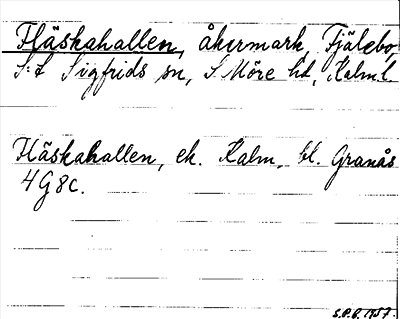 Fläskahallen, åkermark, Fjälebo,
S:t Sigfrids sn, S. Möre hd, Kalm l.
Fläskahallen, ek. Kalm, bl. Granås
4G8c.
S.P.B. 1957.